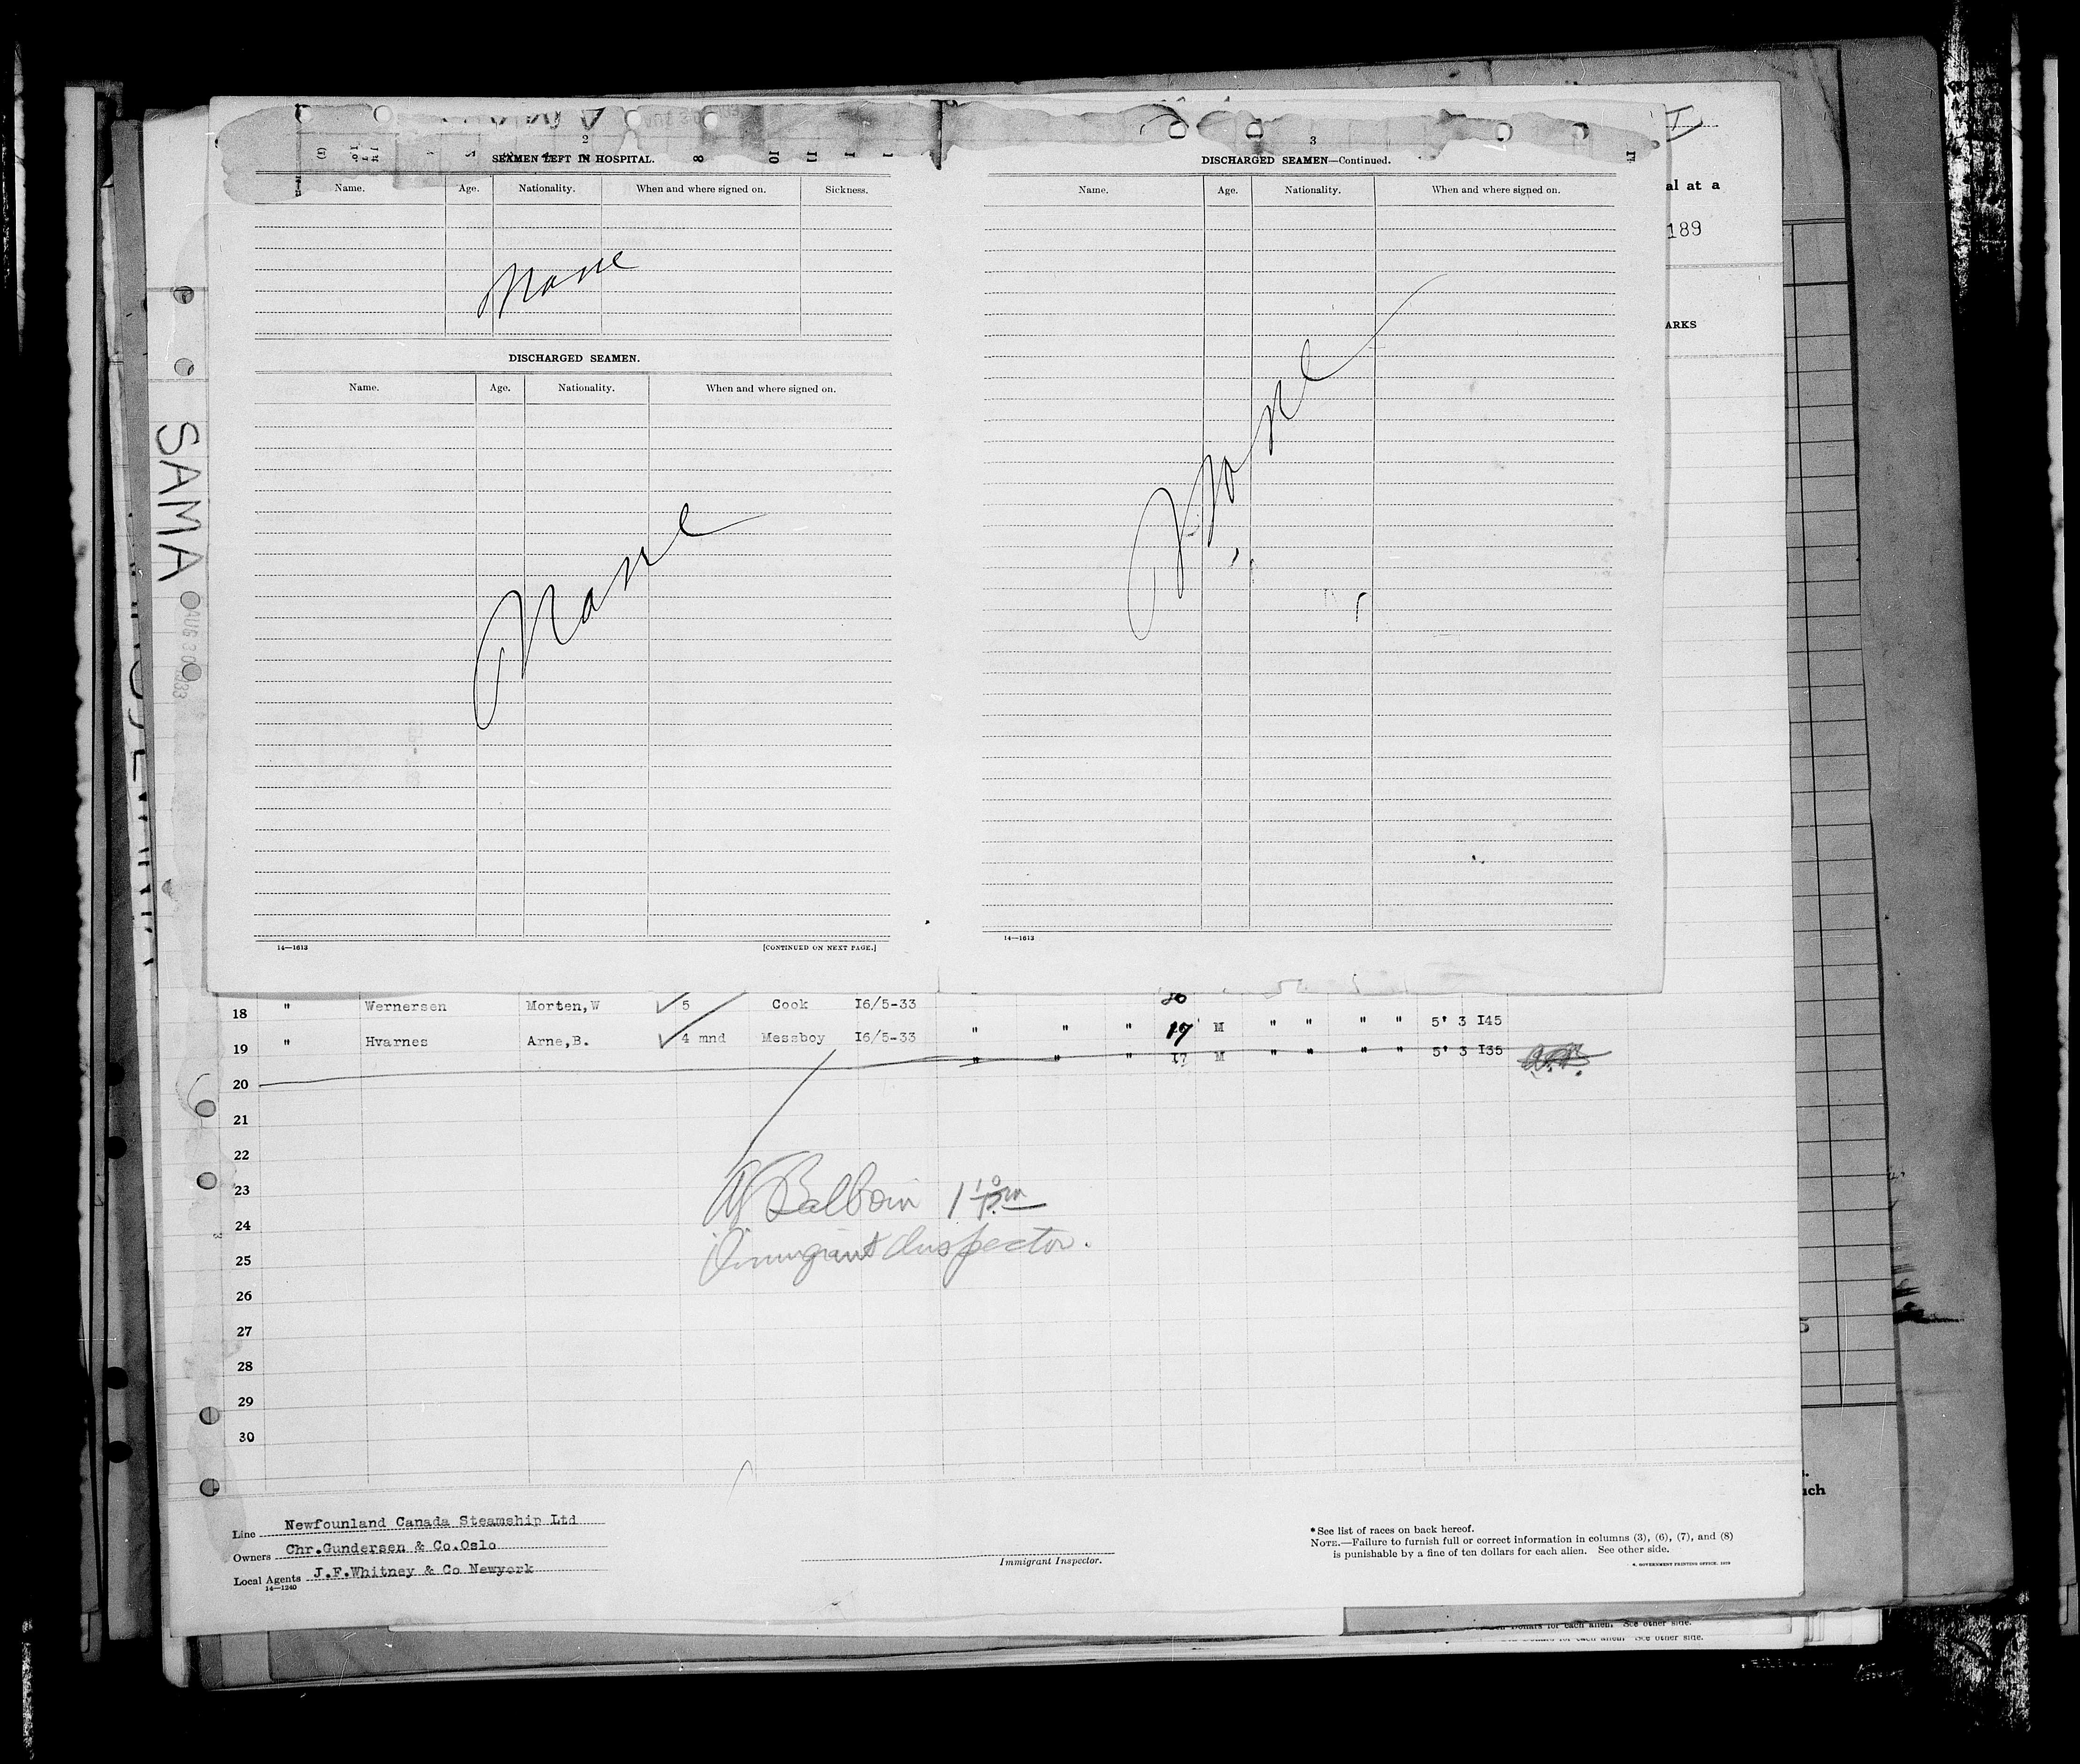 2
SEAMEN LEFT IN HOSPITAL.
Name. Age. Nationality. When and where signed on. Sickness.
None
DISCHARGED SEAMEN.
Name. Age. Nationality. When and where signed on.
None
14—1613 [CONTINUED ON NEXT PAGE.]
3
DISCHARGED SEAMEN—Continued.
Name. Age. Nationality. When and where signed on.
None
14—1613
al at a
189
ARKS
SAMA
AUG 30 1933
18 " Wernersen Morten,W 5 Cook I6/5-33 " " " 17 M " " " " 5' 3 I45
19 " Hvarnes Arne,B. 4 mnd Messboy I6/5-33 " " " I7 M " " " " 5' 3 I35
20
21
22
23
24
25
26
27
28
29
30
Immigrant Inspector.
Line Newfounland Canada Steamship Ltd
Owners Chr.Gundersen & Co.Oslo
Local Agents J.F.Whitney & Co Newyork
14—1240
Immigrant Inspector.
*See list of races on back hereof.
NOTE.—Failure to furnish full or correct information in columns (3), (6), (7), and (8)
is punishable by a fine of ten dollars for each alien. See other side.
uch
for each alien. See other side.
See other side.